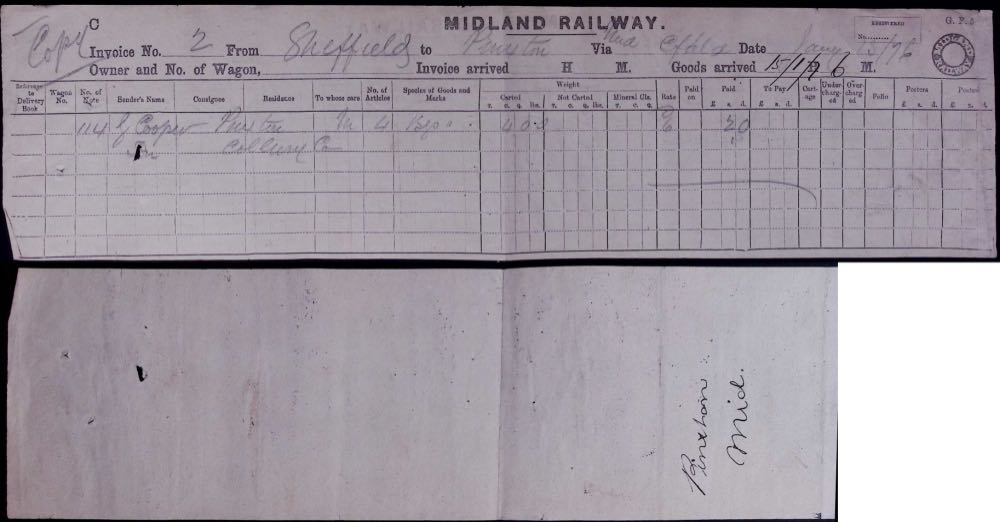 C
MIDLAND RAILWAY.
REGISTERED
No.
G. F. 5
Copy Invoice No. 2 From Sheffield to Pinxton Via Date 15/76
Owner and No. of Wagon, Invoice arrived H M. Goods arrived 15/1/76 M.
Reference to Delivery Book Wagon No. No. of Note Sender's Name Consignee Residence To whose care No. of Articles Species of Goods and Marks Weight Rate Paid on Paid To Pay Cartage Undercharged Overcharged Folio Posters Posters
Carted Not Carted Mineral Cls.
T. C. Q. lbs. T. C. Q. lbs. T. C. Q. £ s. d. £ s. d. £ s. d. £ s.
114 G Cooper Pinxton 4 Bgs 4 0 0 2 0
Colliery Co
Pinxton
Mid.